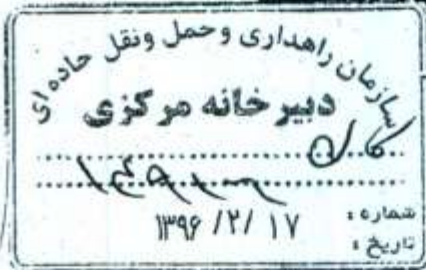 سازمان راهداری و حمل ونقل جاده ای
دبیرخانه مرکزی
شماره :
تاریخ : ۱۳۹۶ /۲/ ۱۷